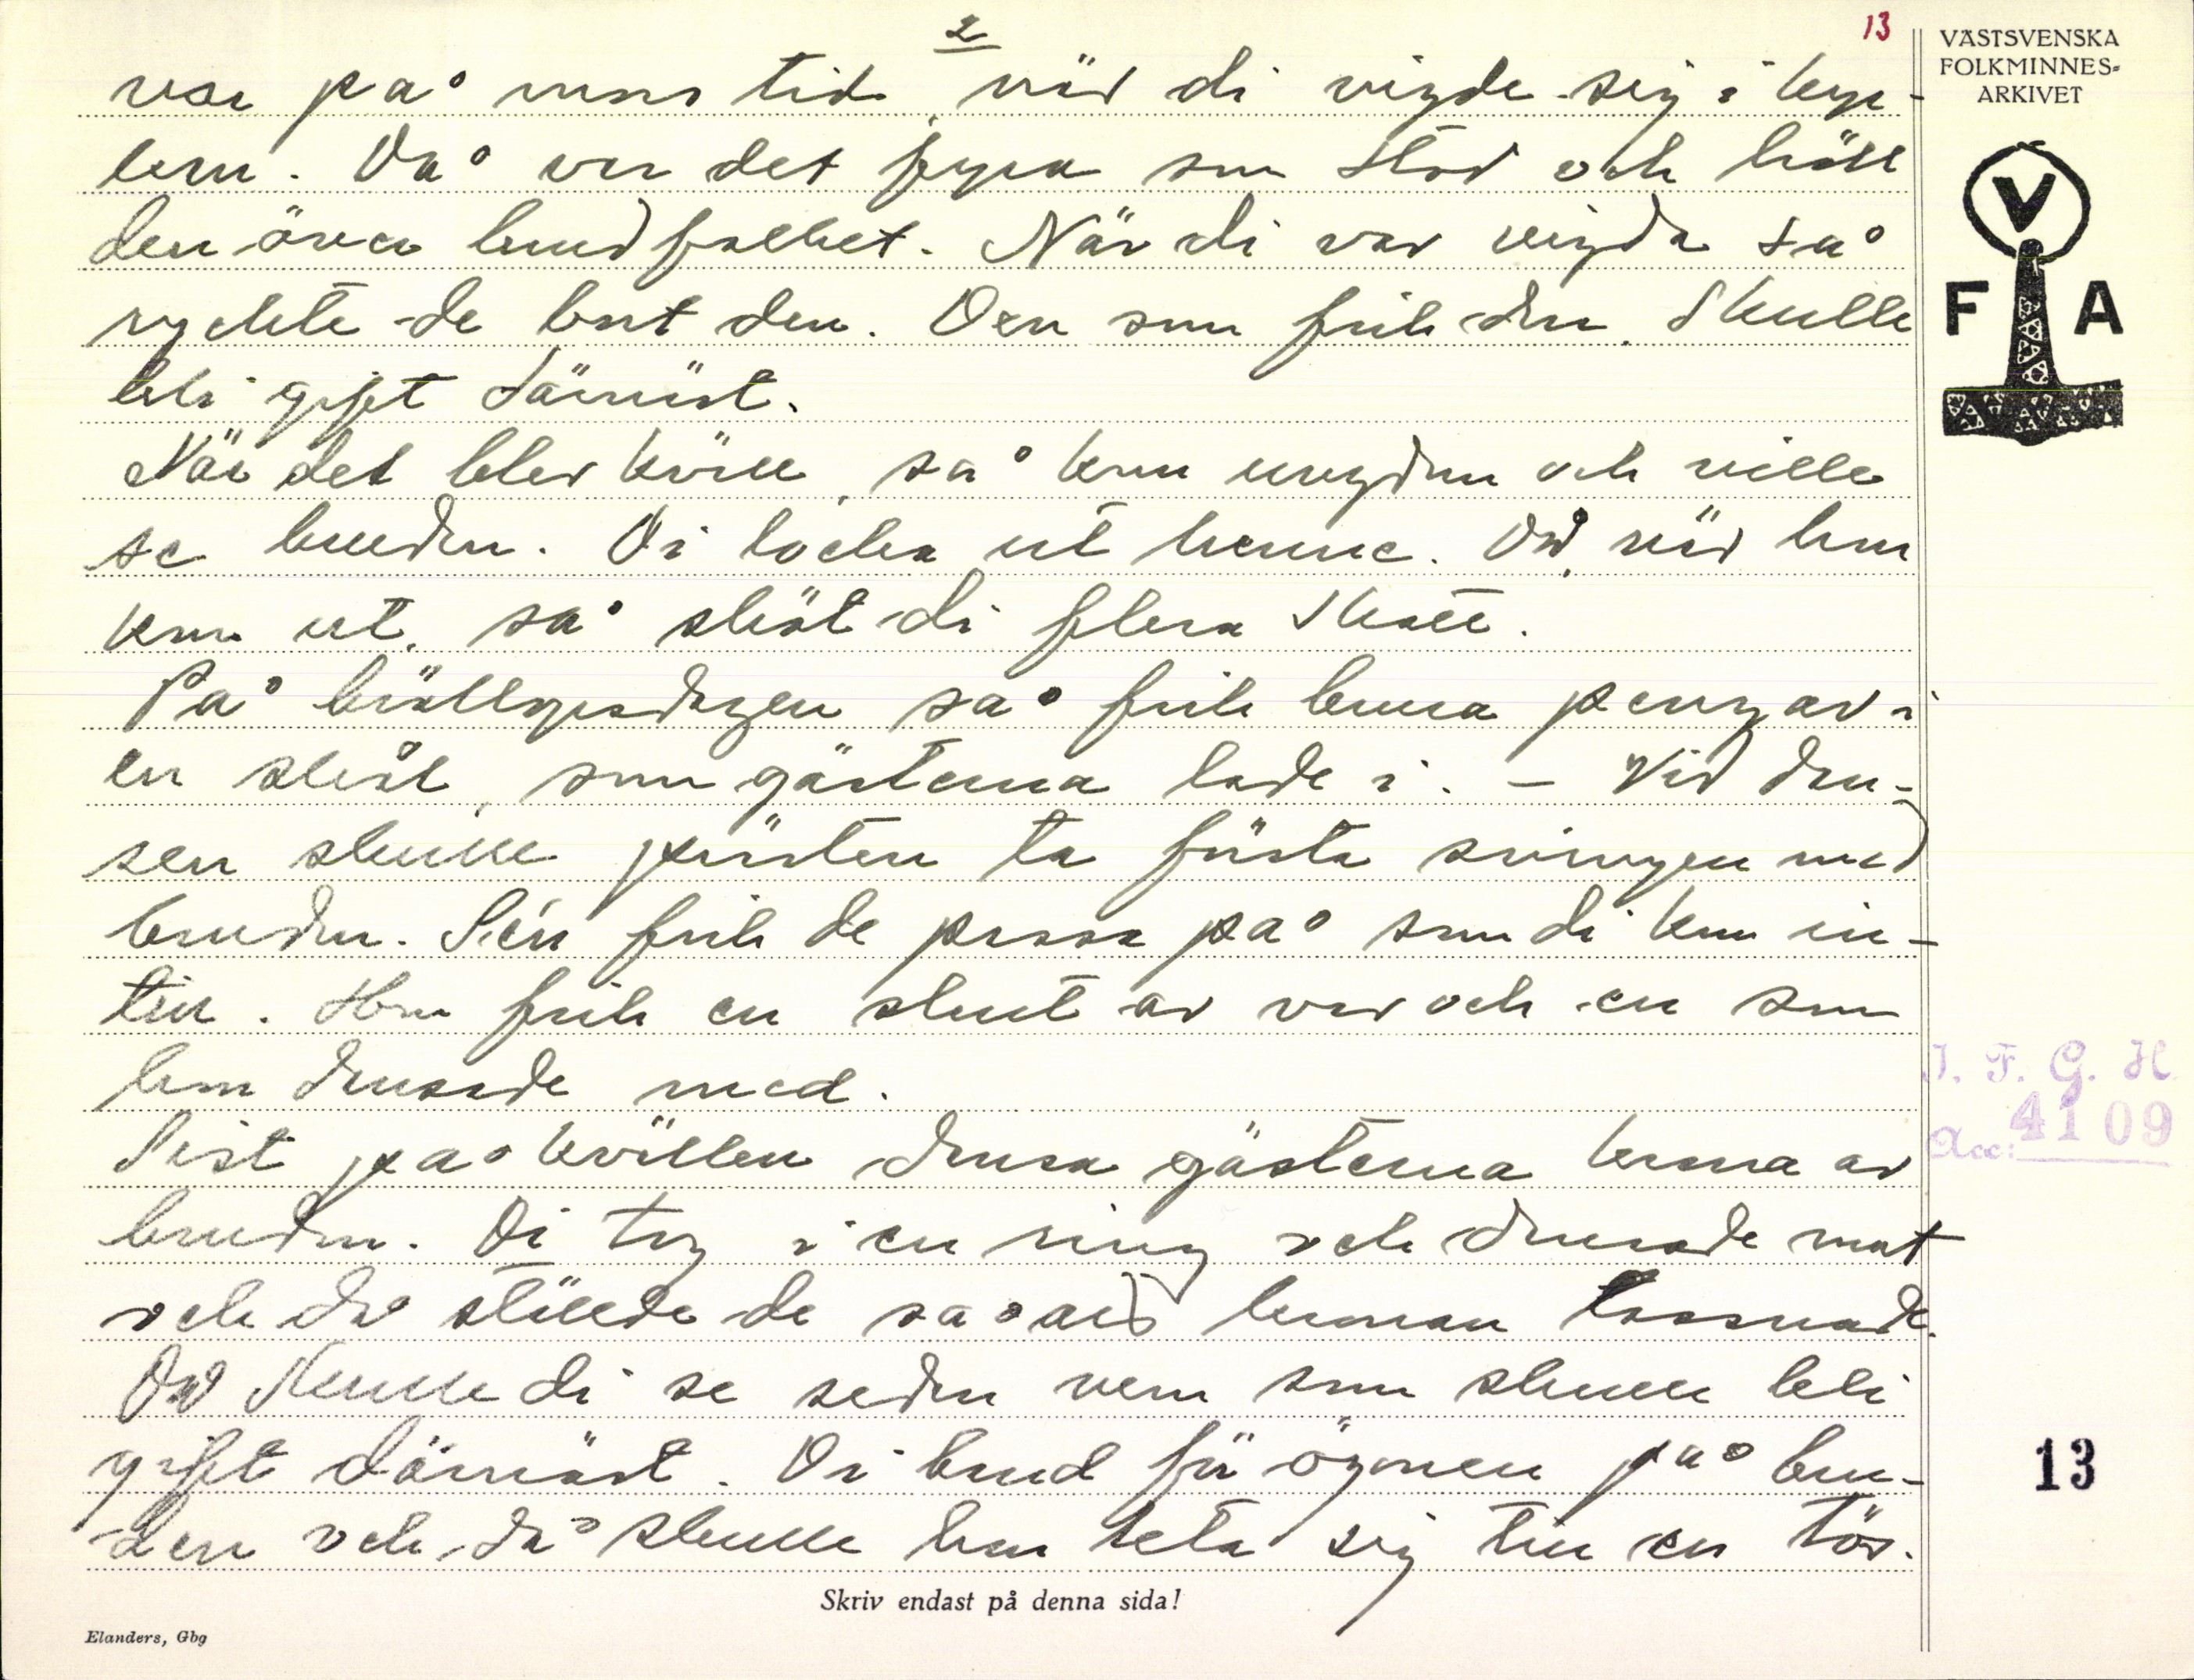 2
13
var på mors tid, när di vigde sig i kyr-
kan. Då var det fyra som stod och höll
den över brudfolket. När di var vigda så
ryckte de bort den. Den som fick den, skulle
bli gift därnäst.
När det blev kväll, så kom ungdom och ville
se bruden. Di locka ut henne. Då, när hon
kom ut, så sköt di flera skott.
På bröllopsdagen så fick brura pengar i
en skål, som gästerna lade i. – Vid dan-
sen skulle prästen ta första svingen med
bruden. Sen fick de passa på som di kom in-
till. Hon fick en slant av var och en som
hon dansade med.
Sist på kvällen dansa gästerna krona av
bruden. Di tog i en ring och dansade runt
och då ställde de så att kronan lossnade.
Då skulle di se sedan vem som skulle bli
gift därnäst. Di band för ögonen på bru-
den och då skulle hon leta sig till en tös.
VÄSTSVENSKA
FOLKMINNES-
ARKIVET
V
F A
I. F. G. H.
Acc: 4109
13
Skriv endast på denna sida!
Elanders, Gbg